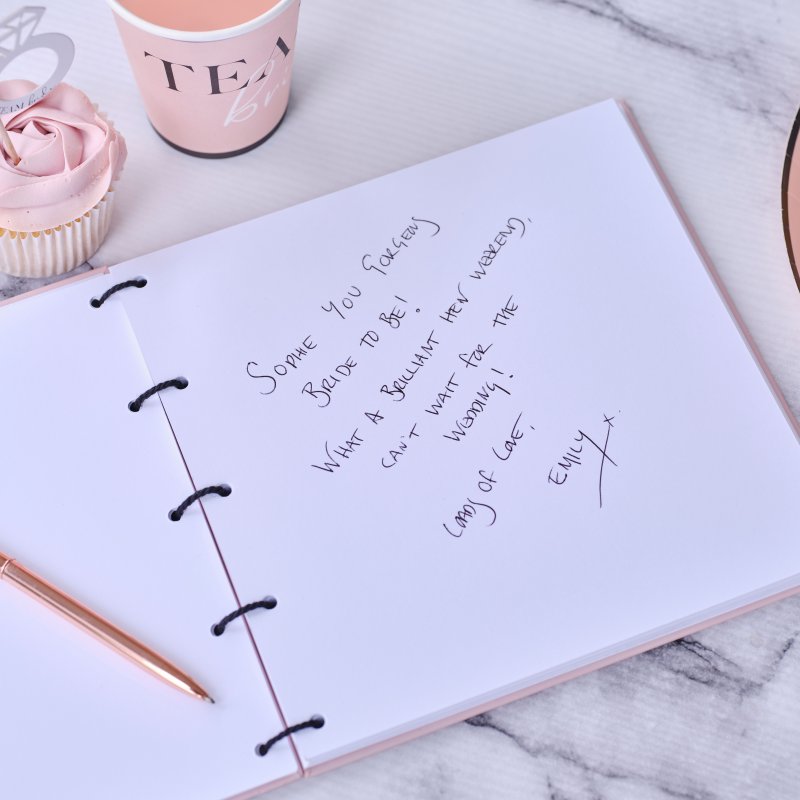 TEAM
bri
TEAM bride
SOPHIE YOU GORGEOUS
BRIDE TO BE!
WHAT A BRILLIANT HEN WEEKEND,
CAN'T WAIT FOR THE
WEDDING!
LOADS OF LOVE,
EMILY x.